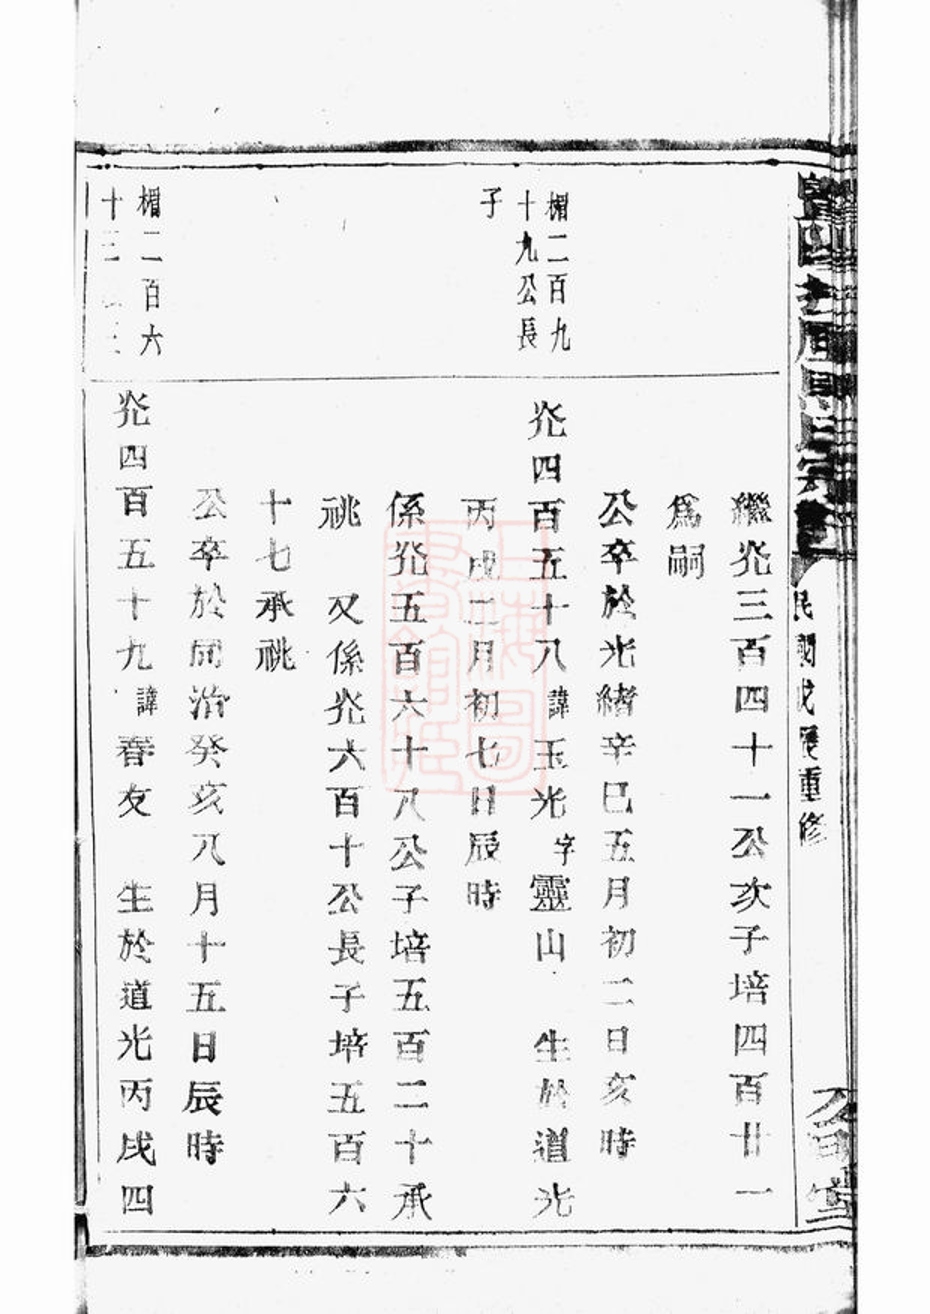 民國戊辰重修
繼炛三百四十一公次子培四百廿一
爲嗣
公卒於光緒辛巳五月初二日亥時
楣二百九
十九公長
子
炛四百五十八諱玉光字靈山 生於道光
丙戌二月初七日辰時
係炛五百六十八公子培五百二十承
祧 又係炛六百十公長子培五百六
十七承祧
公卒於同治癸亥八月十五日辰時
楣二百六
十三
炛四百五十九諱春友 生於道光丙戌四